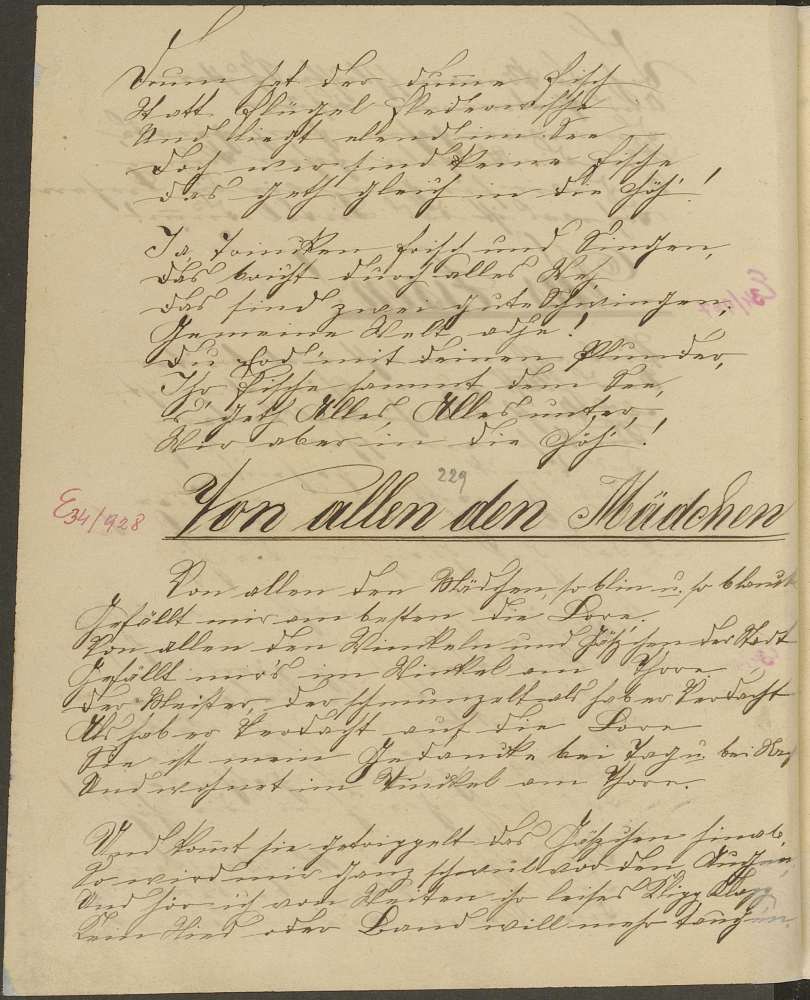 Drum hat der dumme Fisch
Statt Flügel Flederwische
Und liegt elend im See –
Doch wir sind keine Fische
Das geth gleich in die Höh'!
Ja, Trinken frisch und Singen,
Das bricht durch alles Weh,
Das sind zwei gute Schwingen,
Gemeine Welt adje!
Du Erd' mit deinem Plunder,
Ihr Fische sammt dem See,
's geth Alles, Alles unter,
Wir aber in die Höh'!
229
E34/928
Von allen den Mädchen
Von allen den Mädchen so blin u. so blank
Gefällt mir am besten die Lore.
Von allen den Winkeln und Gäßchen der Stadt
Gefällt mir's im Winkel am Thore
Der Meister, der schmunzelt als hab er Verdacht
Als hab er Verdacht auf die Lore
Sie ist mein Gedanke bei Tag u. bei Nac
Und wohnet im Winkel am Thore.
Und kommt sie getrippelt das Gäßchen hinab,
So wird mir ganz schwül vor den Augen,
Und hör ich von Weiten ihr leises Klipp Klapp
Kein Nied oder Band will mehr taugen.